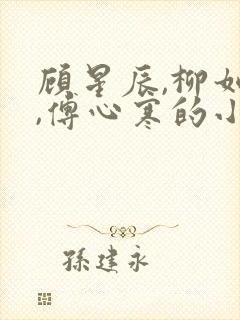 顾星辰,柳如
,傅心寒的小
孫建永